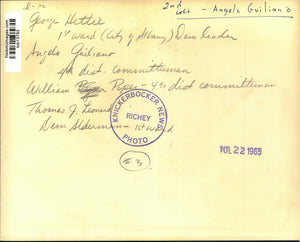 l-r
2nd left - Angelo Guiliano
George Hettie
1st Ward (City of Albany) Dem leader
Angelo Guiliano
4th dist. committeeman
William Piper - 4th dist committeeman
Thomas J. Leonard
Dem Alderman - 1st Ward
KNICKERBOCKER NEWS
RICHEY
PHOTO
#3
JUL 22 1965